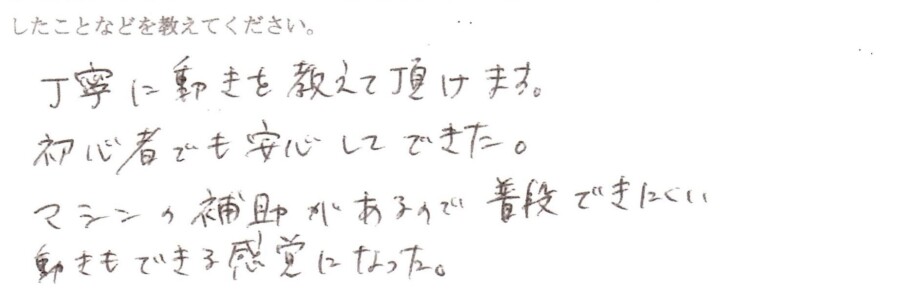 したことなどを教えてください。
丁寧に動きを教えて頂けます。
初心者でも安心してできた。
マシンの補助があるので普段できにくい
動きもできる感覚になった。